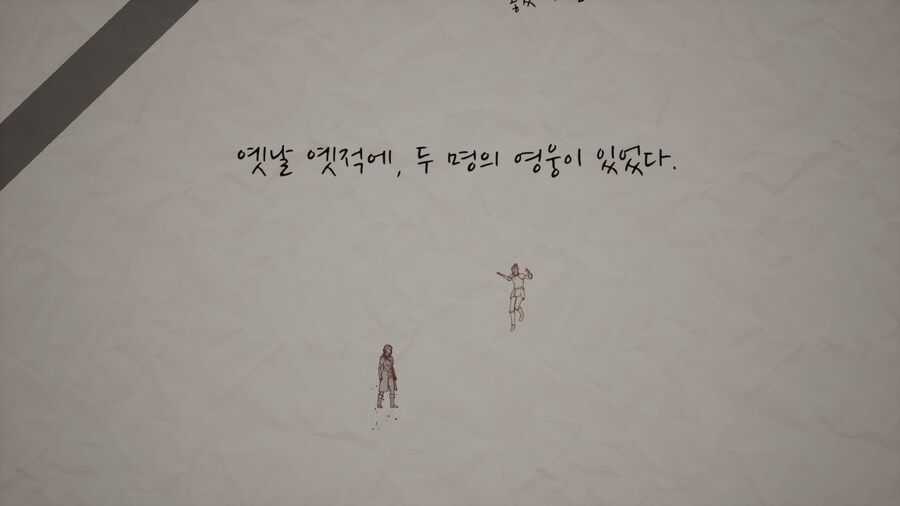 옛날 옛적에, 두 명의 영웅이 있었다.